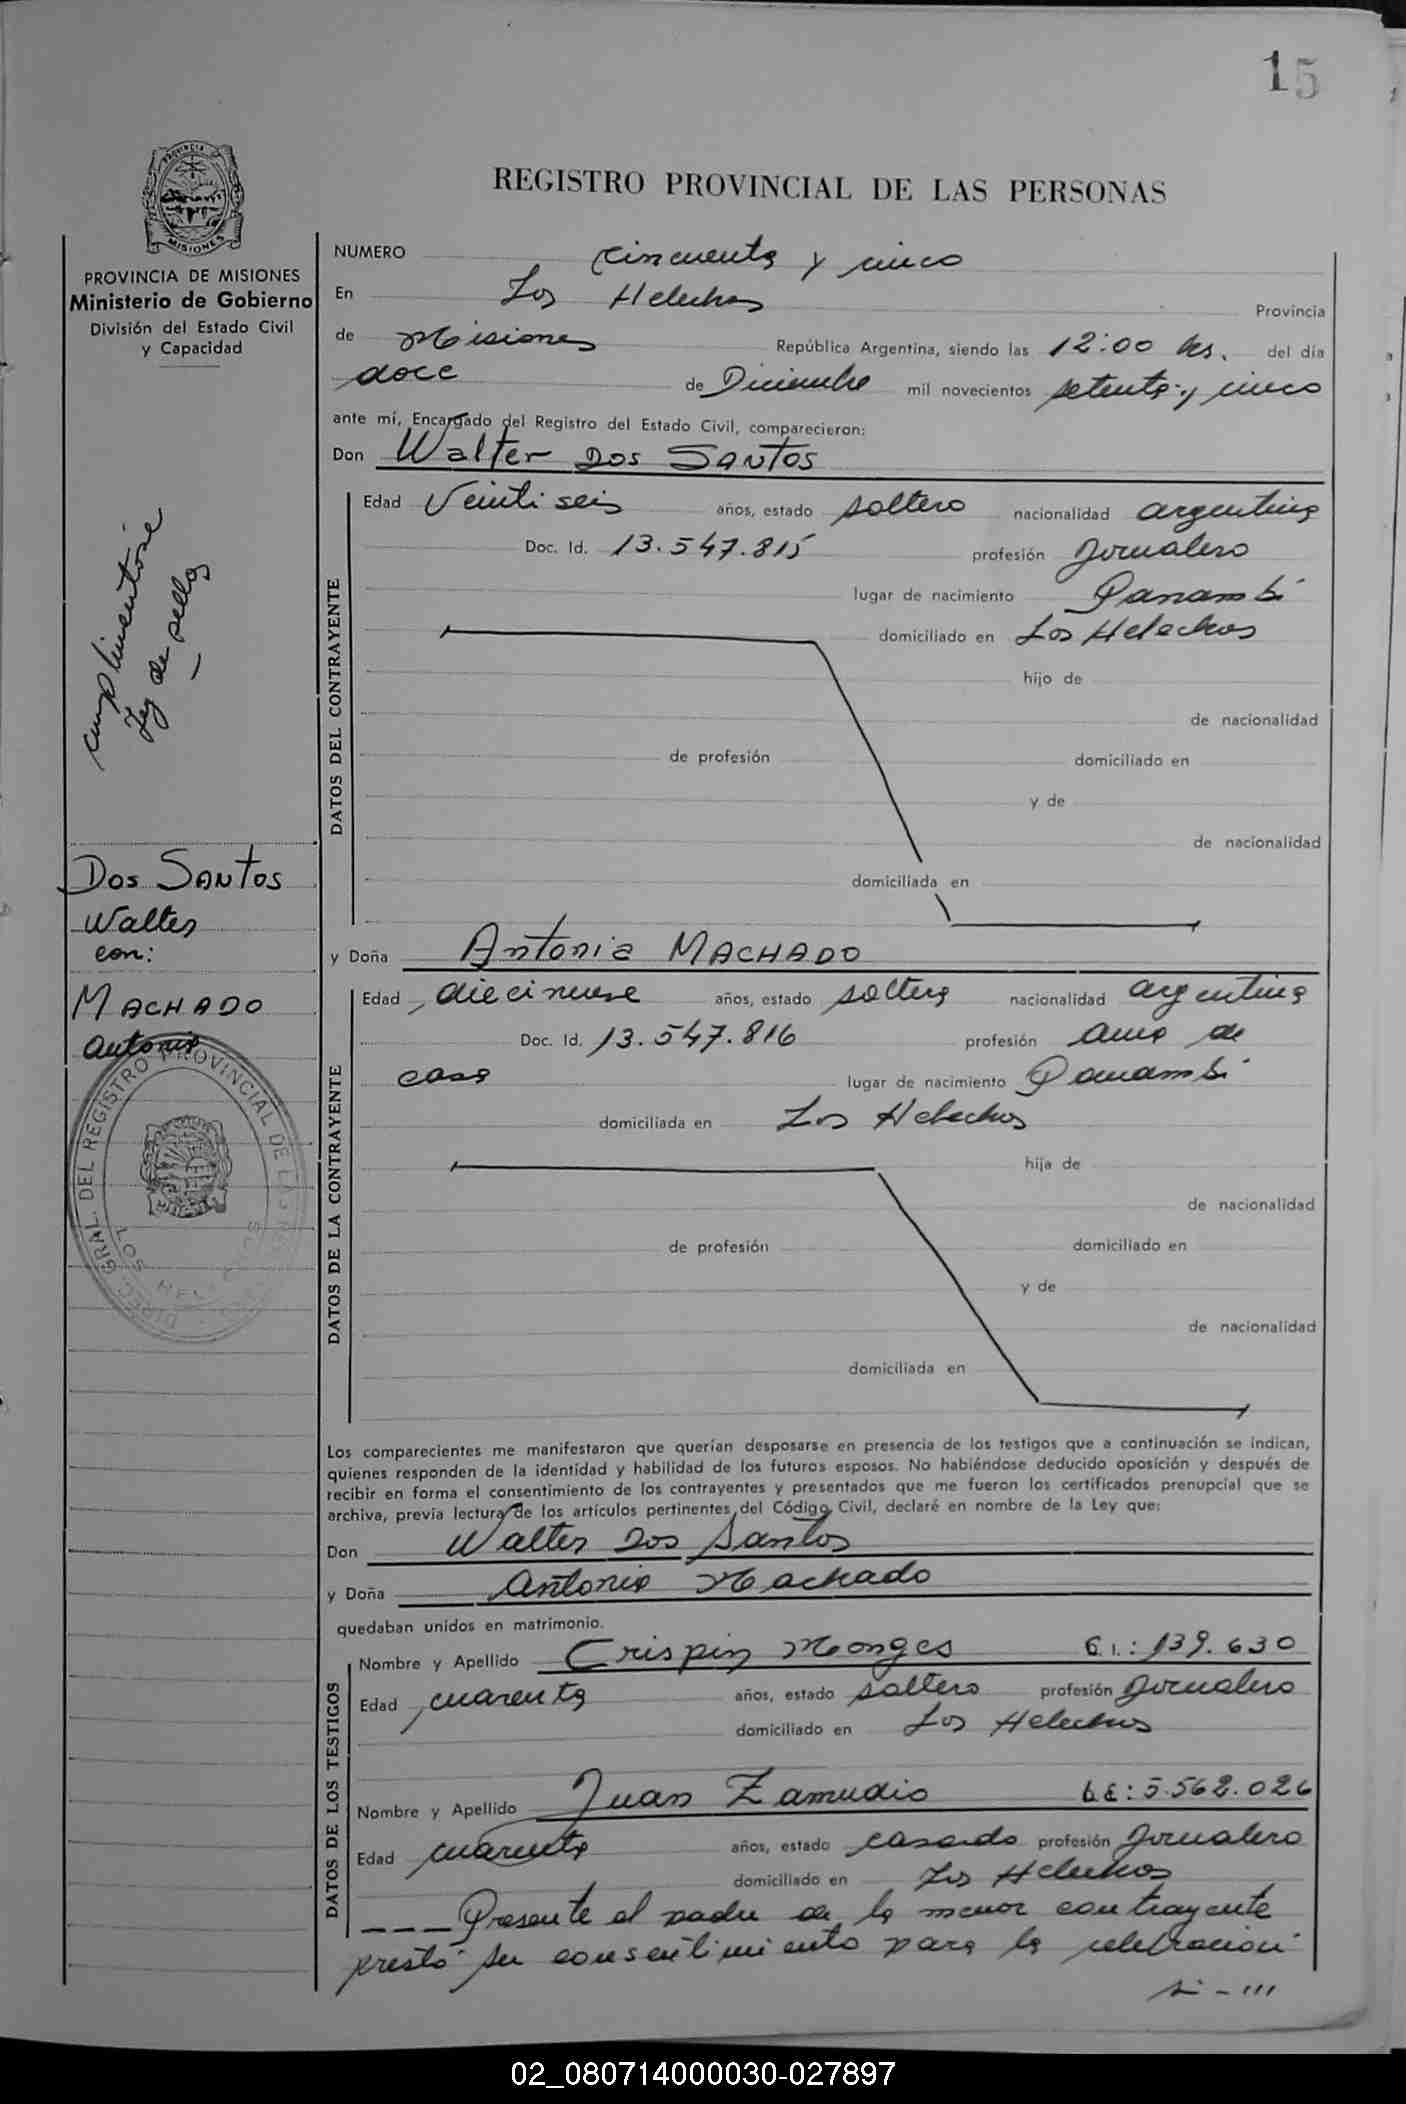 15
PROVINCIA
MISIONES
REGISTRO PROVINCIAL DE LAS PERSONAS
PROVINCIA DE MISIONES
Ministerio de Gobierno
División del Estado Civil
y Capacidad
cumplimentóse
Ley de sellos
Dos SANTOS
Walter
con:
MACHADO
Antonia
DIREC. GRAL. DEL REGISTRO PROVINCIAL DE LAS
LOS HELECHOS
NUMERO cincuenta y cinco
En Los Helechos Provincia
de Misiones República Argentina, siendo las 12:00 hs. del día
doce de Diciembre mil novecientos setenta y cinco
ante mí, Encargado del Registro del Estado Civil, comparecieron:
Don Walter Dos SANTOS
DATOS DEL CONTRAYENTE
Edad Veintiseis años, estado soltero nacionalidad argentina
Doc. Id. 13.547.815 profesión Jornalero
lugar de nacimiento Panambí
domiciliado en Los Helechos
hijo de
de nacionalidad
de profesión domiciliado en
y de
de nacionalidad
domiciliada en
y Doña Antonia MACHADO
DATOS DE LA CONTRAYENTE
Edad diecinueve años, estado soltera nacionalidad argentina
Doc. Id. 13.547.816 profesión ama de
casa lugar de nacimiento Panambí
domiciliada en Los Helechos
hija de
de nacionalidad
de profesión domiciliado en
y de
de nacionalidad
domiciliada en
Los comparecientes me manifestaron que querían desposarse en presencia de los testigos que a continuación se indican,
quienes responden de la identidad y habilidad de los futuros esposos. No habiéndose deducido oposición y después de
recibir en forma el consentimiento de los contrayentes y presentados que me fueron los certificados prenupcial que se
archiva, previa lectura de los artículos pertinentes del Código Civil, declaré en nombre de la Ley que:
Don Walter Dos Santos
y Doña Antonia Machado
quedaban unidos en matrimonio.
DATOS DE LOS TESTIGOS
Nombre y Apellido Crispin Monges C.I.: 139.630
Edad cuarenta años, estado soltero profesión Jornalero
domiciliado en Los Helechos
Nombre y Apellido Juan Zamudio L.E: 5.562.026
Edad cuarenta años, estado casado profesión Jornalero
domiciliado en Los Helechos
___Presente el padre de la menor contrayente
prestó su consentimiento para la celebración
02_080714000030-027897